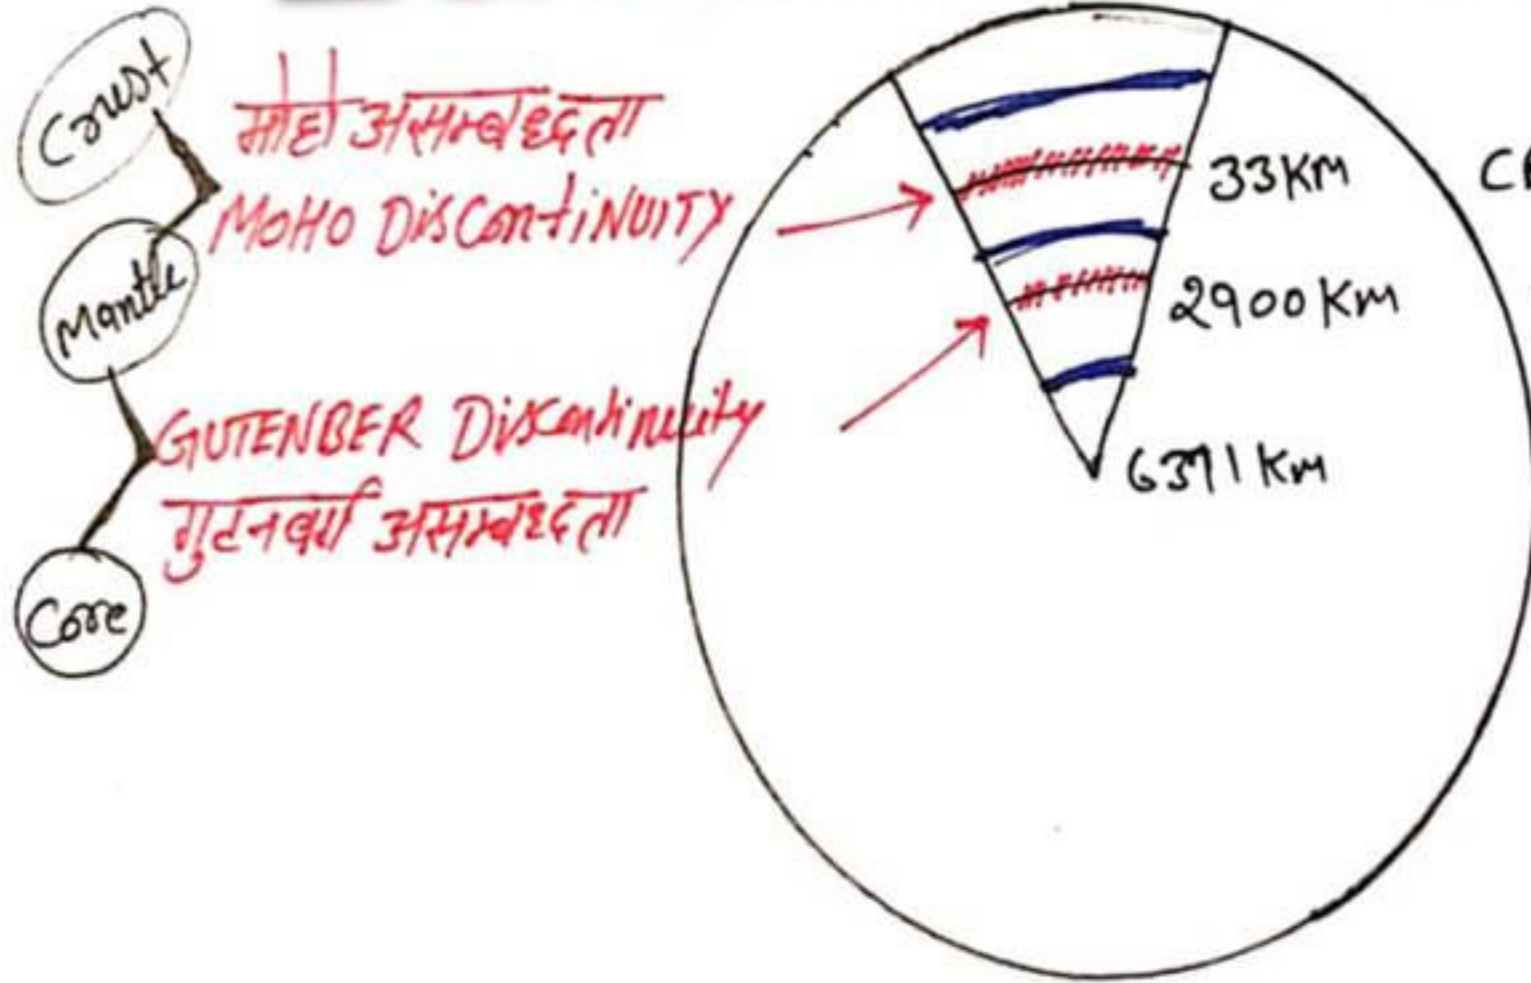 Crust
मोहो असम्बध्दता
MOHO DISCONTINUITY
Mantle
GUTENBER Discontinuity
गुटनबर्ग असम्बध्दता
Core
33KM
2900 Km
6371 Km